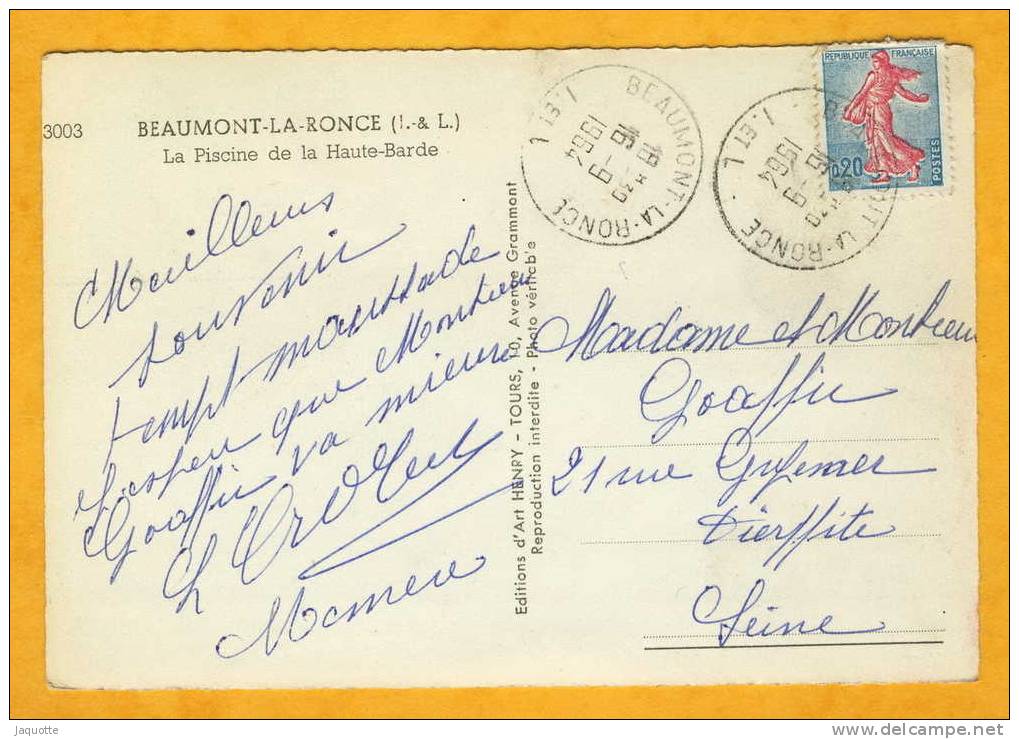 3003 BEAUMONT-LA-RONCE (I.-& L.)
La Piscine de la Haute-Barde
Meilleurs
souvenir
tempt maussade
J'aspère que Monsieur
Goaffic va mieux
Memere
Editions d'Art HENRY - TOURS, 10, Avenue Grammont
Reproduction interdite - Photo véritab'e
BEAUMONT-LA-RONCE
I. ET L
18H30
16-9
1964
BEAUMONT-LA-RONCE
I. ET L
18H30
16-9
1964
REPUBLIQUE FRANÇAISE
0,20
POSTES
Madame et Monsieur
Goaffic
21 rue Guynemer
Pierffite
Seine
Jaquotte
www.delcampe.net